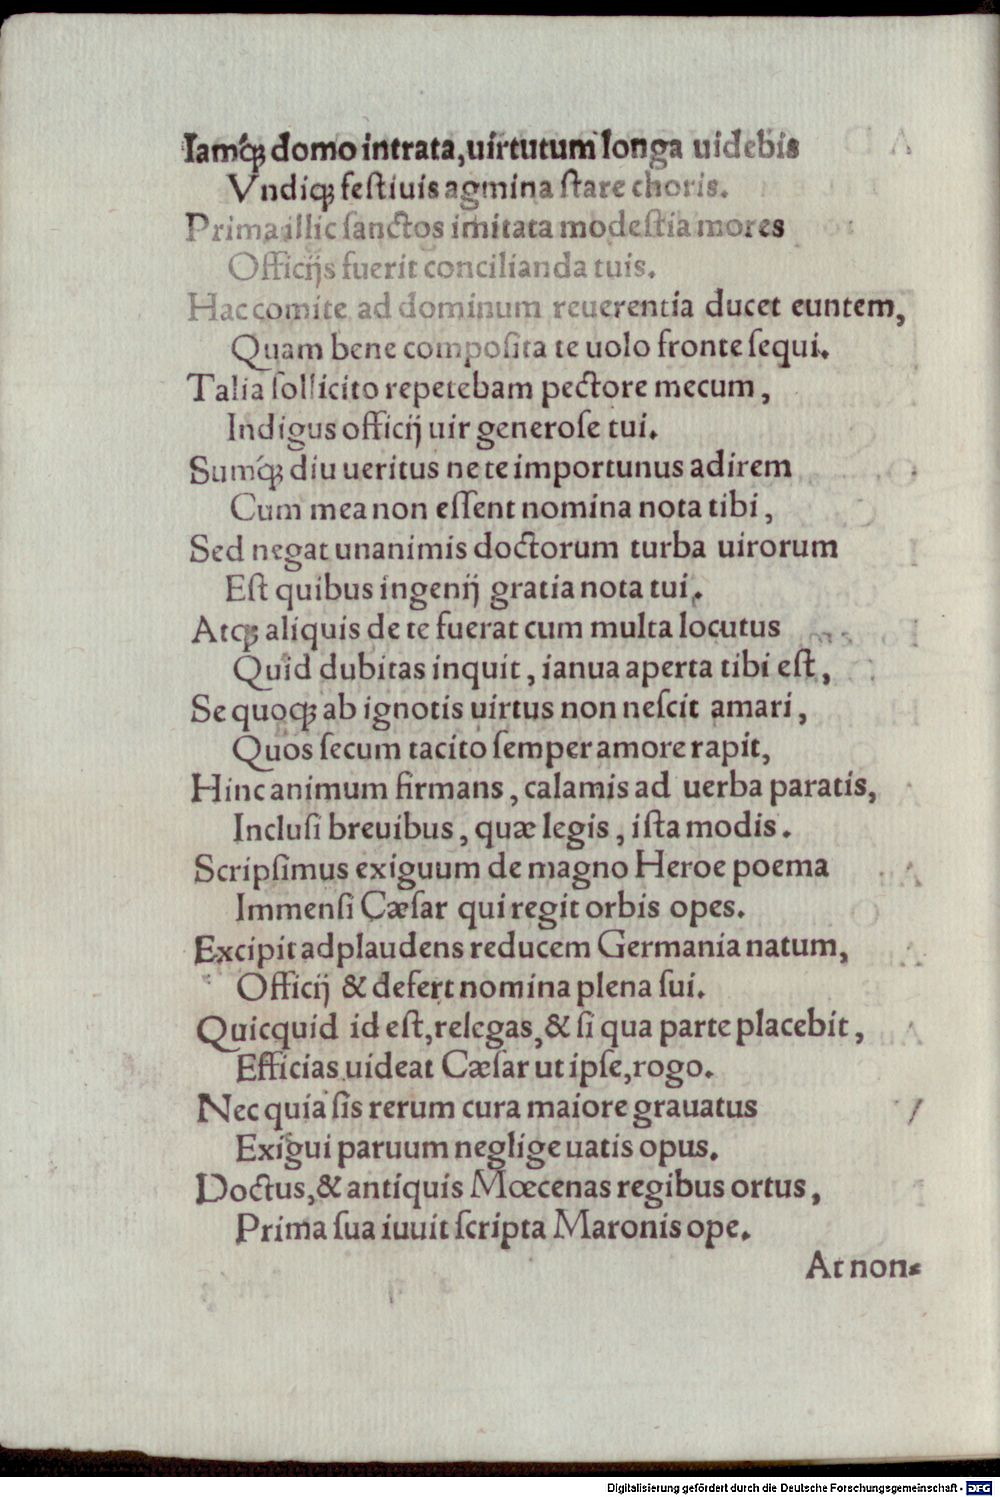 Iamq́ꝫ domo intrata, uirtutum longa uidebis
Vndiqꝫ feſtiuis agmina ſtare choris.
Prima illic ſanctos imitata modeſtia mores
Officijs fuerit concilianda tuis.
Hac comite ad dominum reuerentia ducet euntem,
Quam bene compoſita te uolo fronte ſequi.
Talia ſollicito repetebam pectore mecum,
Indigus officij uir generoſe tui.
Sumq́ꝫ diu ueritus ne te importunus adirem
Cum mea non eſſent nomina nota tibi,
Sed negat unanimis doctorum turba uirorum
Eſt quibus ingenij gratia nota tui.
Atqꝫ aliquis de te fuerat cum multa locutus
Quid dubitas inquit, ianua aperta tibi eſt,
Se quoqꝫ ab ignotis uirtus non neſcit amari,
Quos ſecum tacito ſemper amore rapit,
Hinc animum firmans, calamis ad uerba paratis,
Incluſi breuibus, quæ legis, iſta modis.
Scripſimus exiguum de magno Heroe poema
Immenſi Cæſar qui regit orbis opes.
Excipit adplaudens reducem Germania natum,
Officij & defert nomina plena ſui.
Quicquid id eſt, relegas, & ſi qua parte placebit,
Efficias uideat Cæſar ut ipſe, rogo.
Nec quia ſis rerum cura maiore grauatus
Exigui paruum neglige uatis opus.
Doctus, & antiquis Mœcenas regibus ortus,
Prima ſua iuuit ſcripta Maronis ope.
At non⸗
Digitalisierung gefördert durch die Deutsche Forschungsgemeinschaft - DFG